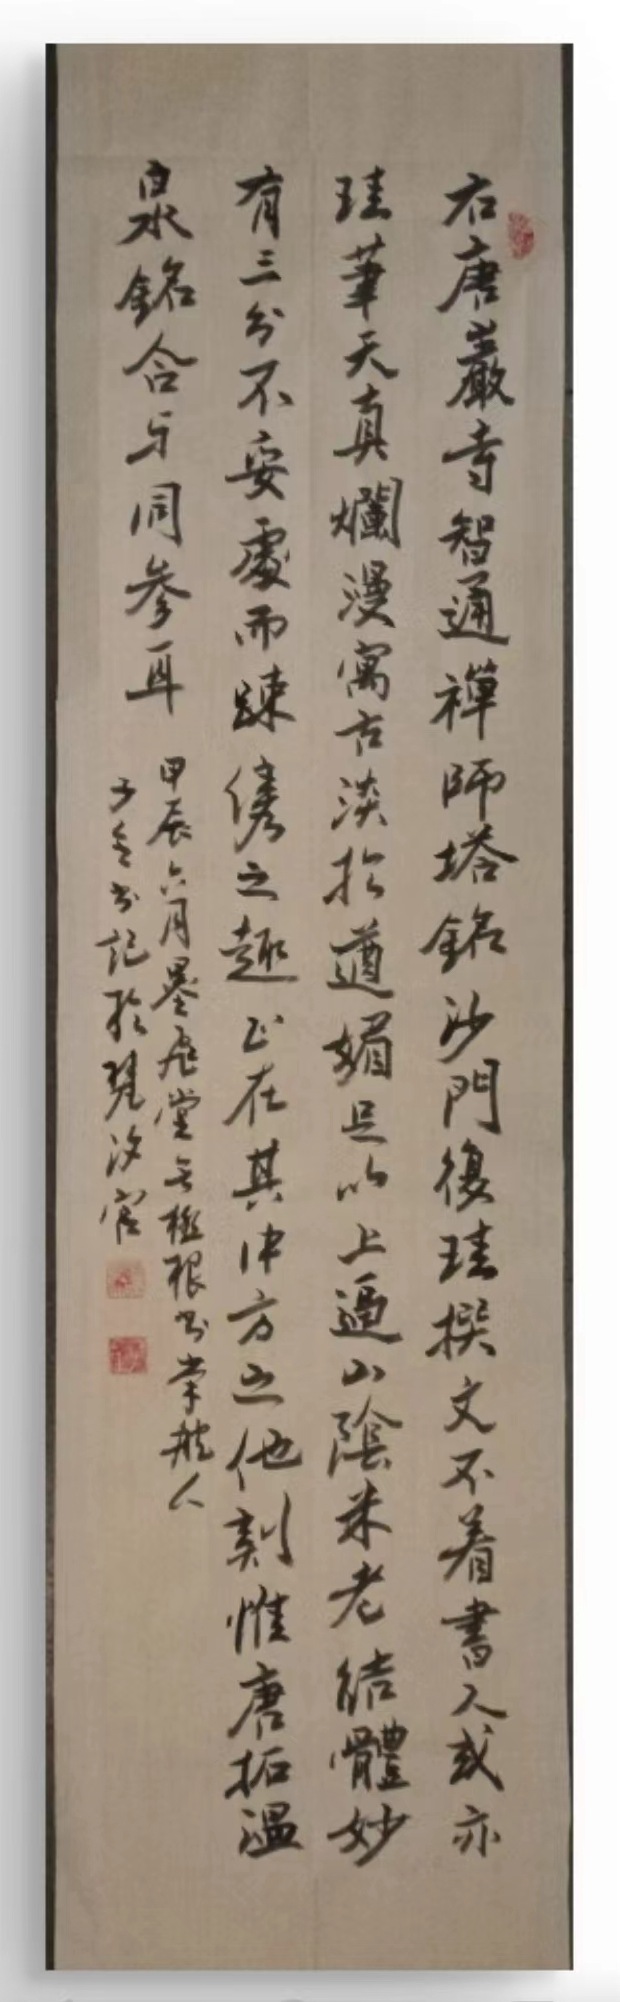 右唐巖寺智通禪師塔銘沙門復珪撰文不着書人或亦
珪筆天真爛漫寓古淡於遒媚足以上逼山陰米老結體妙
有三分不妥處而踈儁之趣正在其中方之他刻惟唐拓溫
泉銘合与同參耳
甲辰六月墨庭堂
書記於